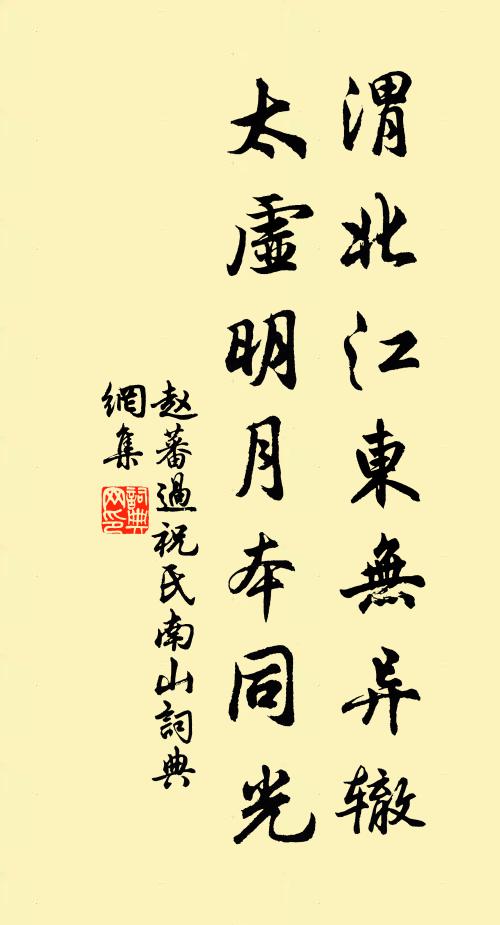 渭北江東無异辙
太虛明月本同光
赵蕃過祝氏南山詞典
網集
詞典
网印